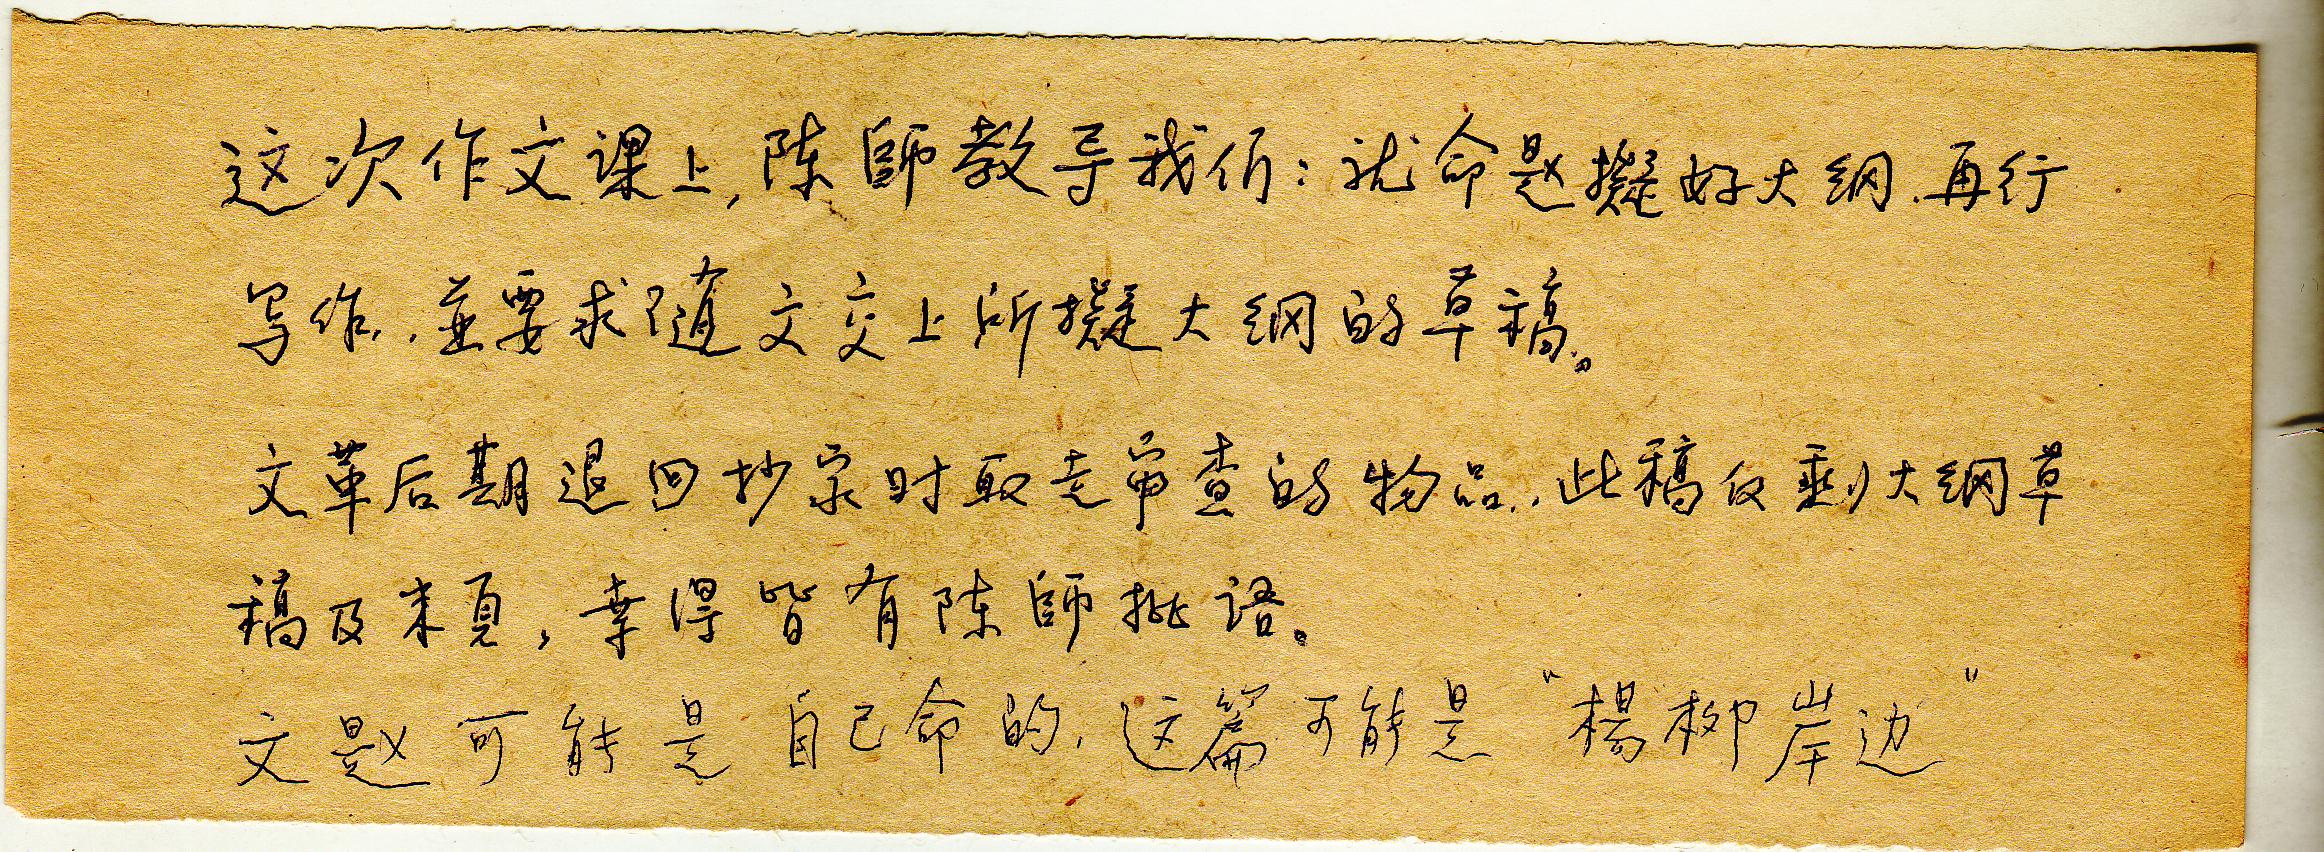 这次作文课上,陈師教导我们:就命题擬好大纲.再行
写作,並要求随文交上所擬大纲的草稿。
文革后期退回抄家时取走审查的物品,此稿仅剩大纲草
稿及末頁,幸得皆有陈師批语。
文题可能是自己命的,这篇可能是"楊柳岸边"